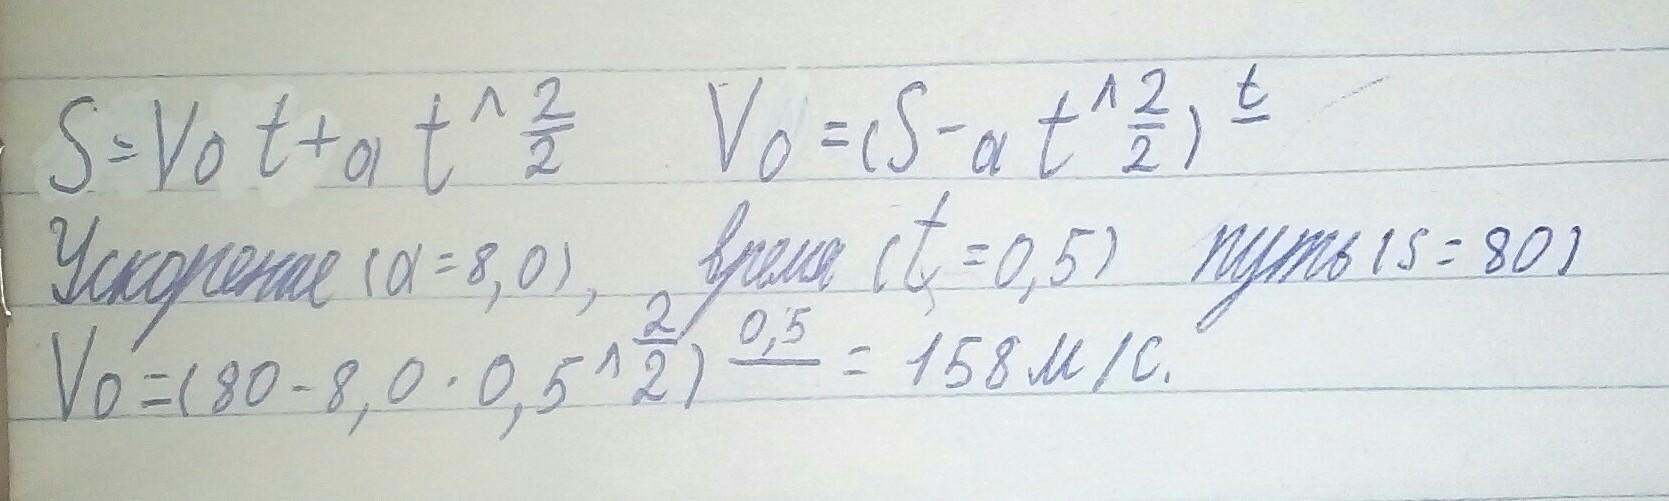 S = V0 t + a t ^ 2/2 V0 = (S - a t ^ 2/2) t
Ускорение (a = 8,0), время (t = 0,5) путь (s = 80)
V0 = (80 - 8,0 · 0,5 ^ 2/2) 0,5 = 158 м/с.